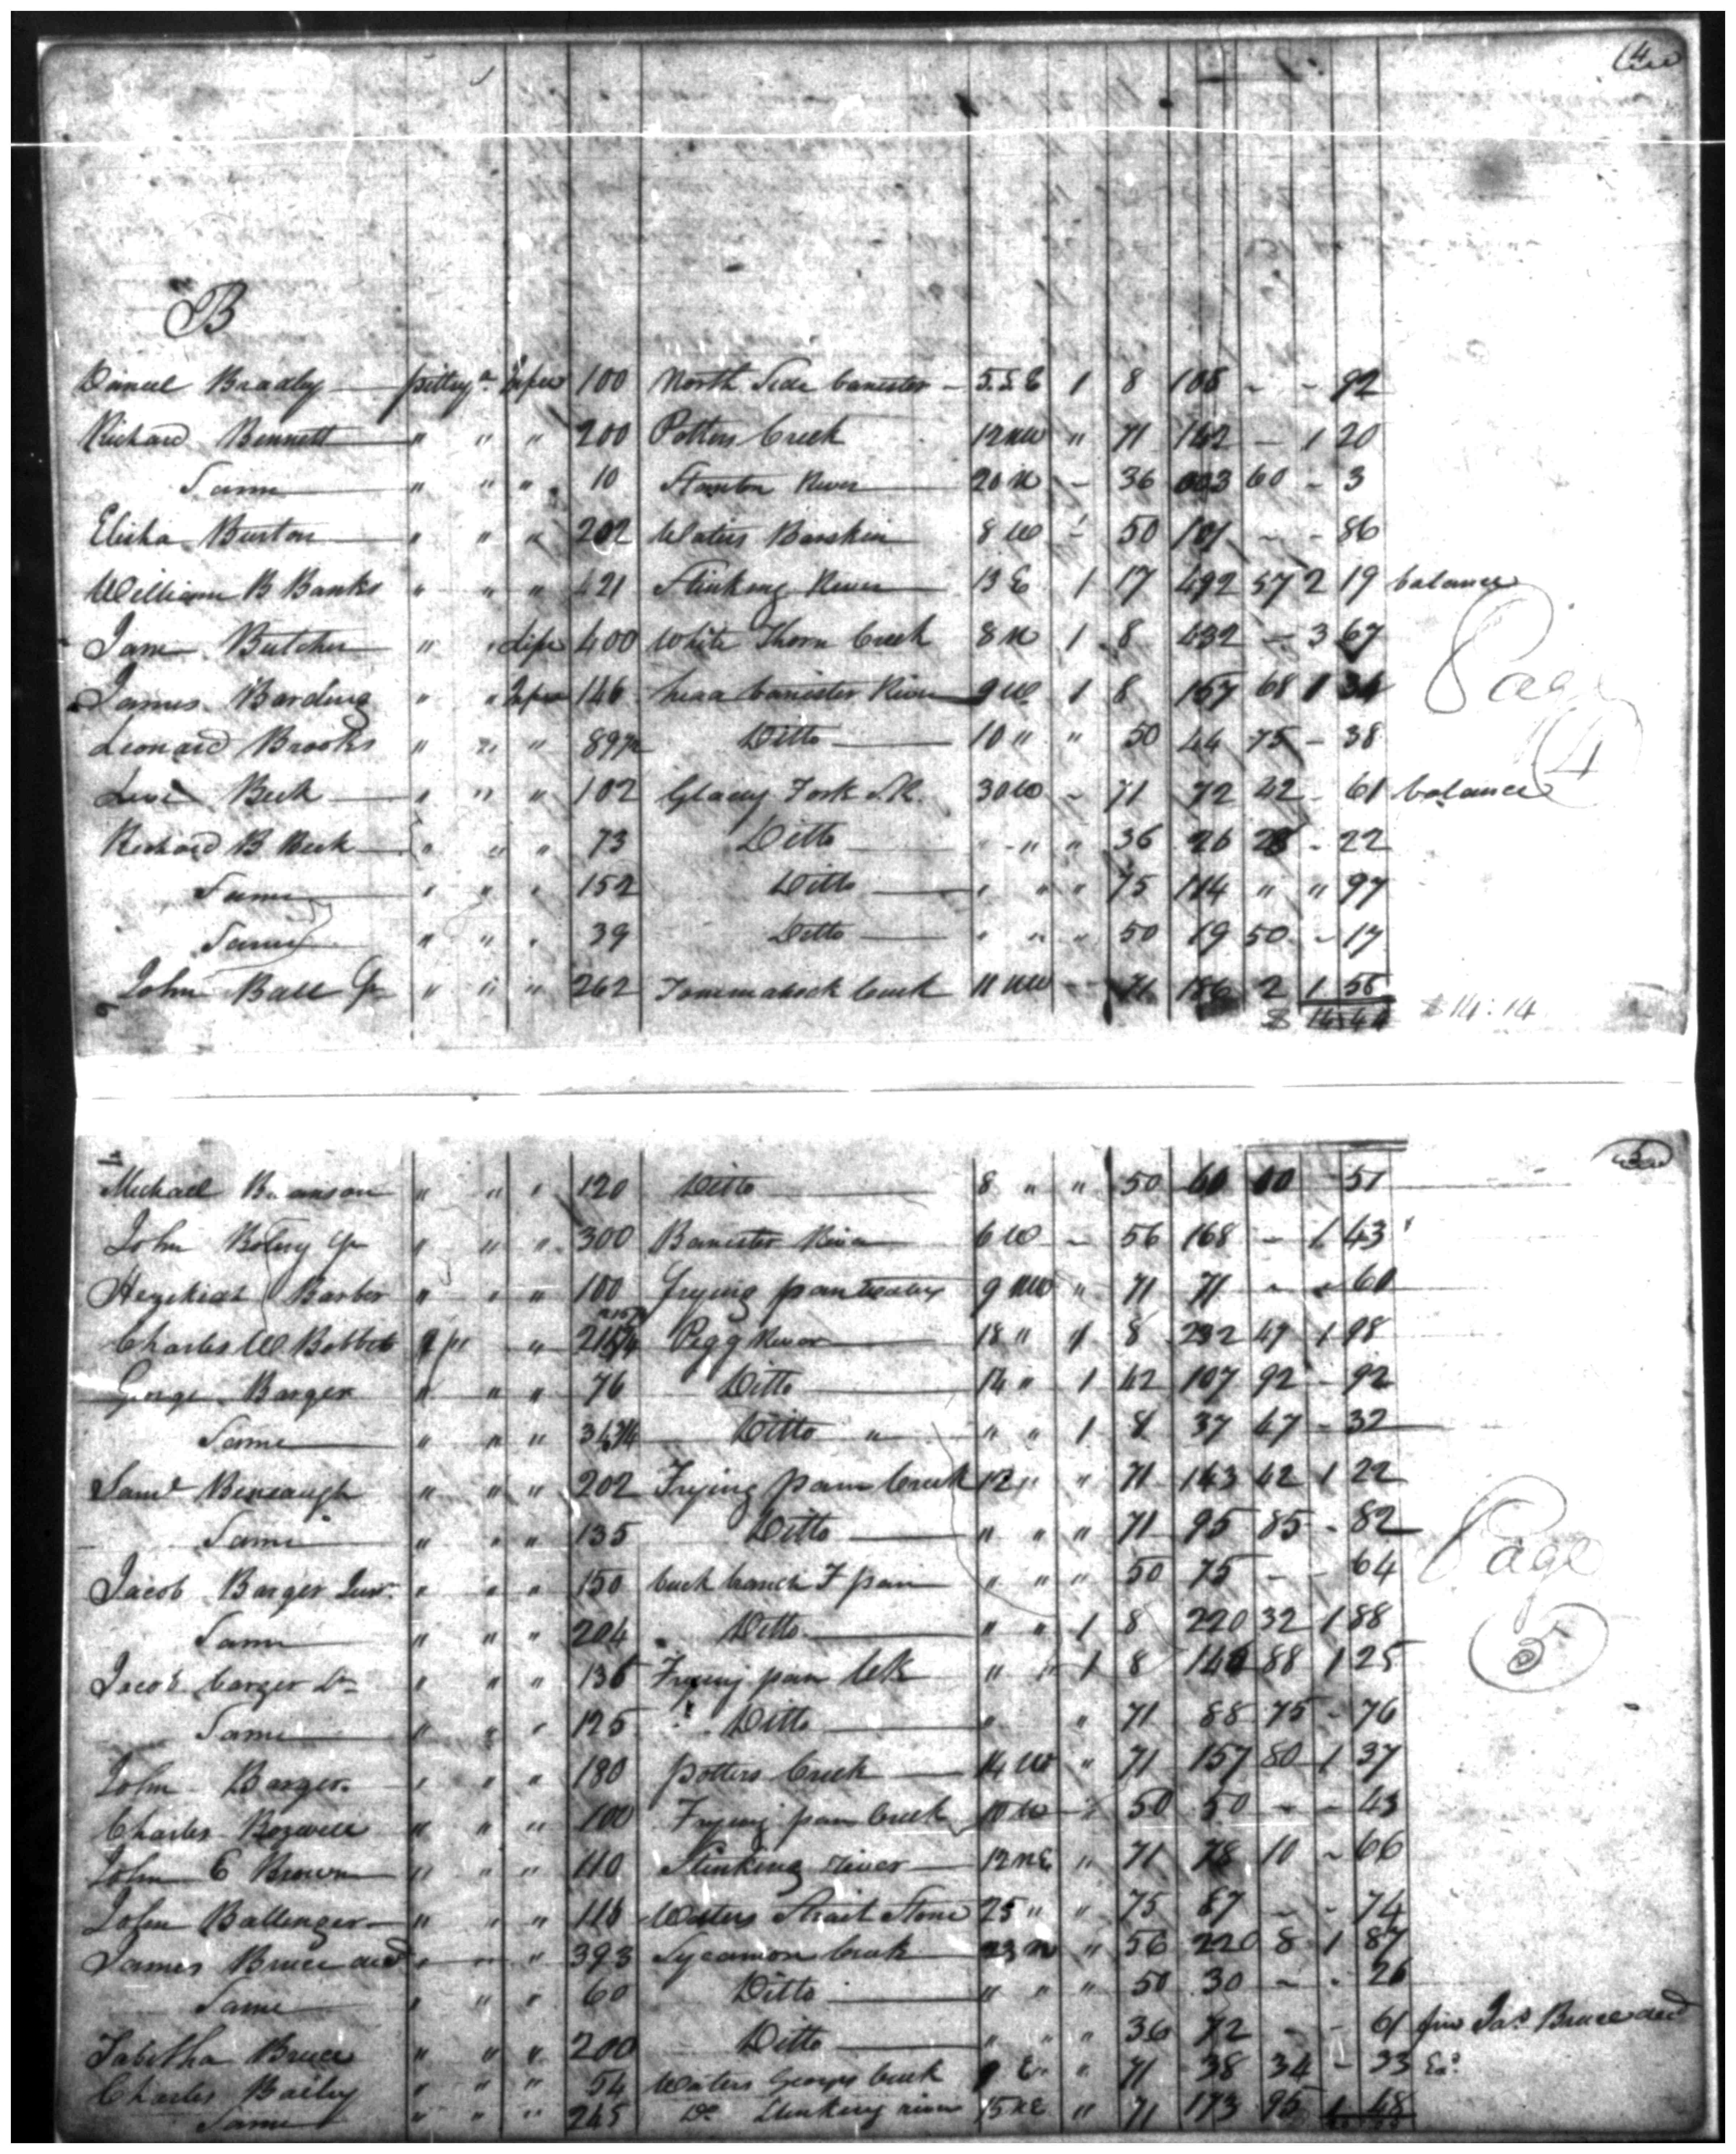 B
Daniel Bradly pittsya 100 North Side banister 5.S.E 1 8 108 - - 92
Richard Bennett " " " 200 Potters Creek 12 NW " 71 142 - 1 20
Same " " " 10 Stanton River 20 N - 36 3 60 - 3
Elisha Burton " " " 202 Waters Barskin 8 W - 50 101 - - 86
William B Banks " " " 421 Stinking River 13 E 1 17 492 57 2 19 balance
Jam Butcher " " Life 400 White Thorn Creek 8 N 1 8 432 - 3 67
James Barding " " 146 head banister River 9 W 1 8 157 68 1 34
Leonard Brooks " " " 89½ Ditto 10 " " 50 44 75 - 38
Levi Beck " " " 102 Glady Fork S.R. 30 W - 71 72 42 - 61 balance
Richard B Beck " " " 73 Ditto " " " 36 26 28 - 22
Same " " " 152 Ditto " " " 75 114 " " 97
Same " " " 39 Ditto " " " 50 19 50 - 17
John Ball Jr " " " 262 Tommahock Creek 11 NW - 71 186 2 1 58
$ 14:14
Page
4
5
Michael Branson " " " 120 Ditto 8 " " 50 60 00 - 51
John Jr " " " 300 Banister River 6 W - 56 168 - 1 43
Hezekiah Barber " " " 100 Frying pan waters 9 NW " 71 71 - - 60
Charles W Bobbit " " 215¼ Pigg River 18 " 1 8 232 47 1 98
George Barger " " " 76 Ditto 14 " 1 42 107 92 - 92
Same " " " 34¾ Ditto " " " 1 8 37 47 - 32
Saml " " " 202 Frying pan Creek 12 " " 71 143 42 1 22
Same " " " 135 Ditto " " " 71 95 85 - 82
Jacob Barger Junr " " " 150 buck branch F pan " " " 50 75 - - 64
Same " " " 204 Ditto " " 1 8 220 32 1 88
Jacob barger Sr " " " 136 Frying pan Crk " " 1 8 146 88 1 25
Same " " " 125 Ditto " " 71 88 75 - 76
John Barger " " " 180 potters Creek 14 W " 71 157 80 1 37
Charles Bozwell " " " 100 Frying pan Creek 10 W - 50 50 - - 43
John E Brown " " " 110 Stinking River 12 NE " 71 78 10 - 66
John Ballenger " " " 116 Waters Strait Stone 25 " " 75 87 - - 74
James Bruce decd " " " 393 Sycamore Creek 23 N " 56 220 8 1 87
Same " " " 60 Ditto " " " 50 30 - - 26
Tabitha Bruce " " " 200 Ditto " " " 36 72 - - 61 Jas Bruce decd
Charles Bailey " " " 54 Waters Georges Creek 9 E " 71 38 34 - 33
Same " " " 245 Do Stinking river 15 NE " 71 173 95 1 48
Page
5